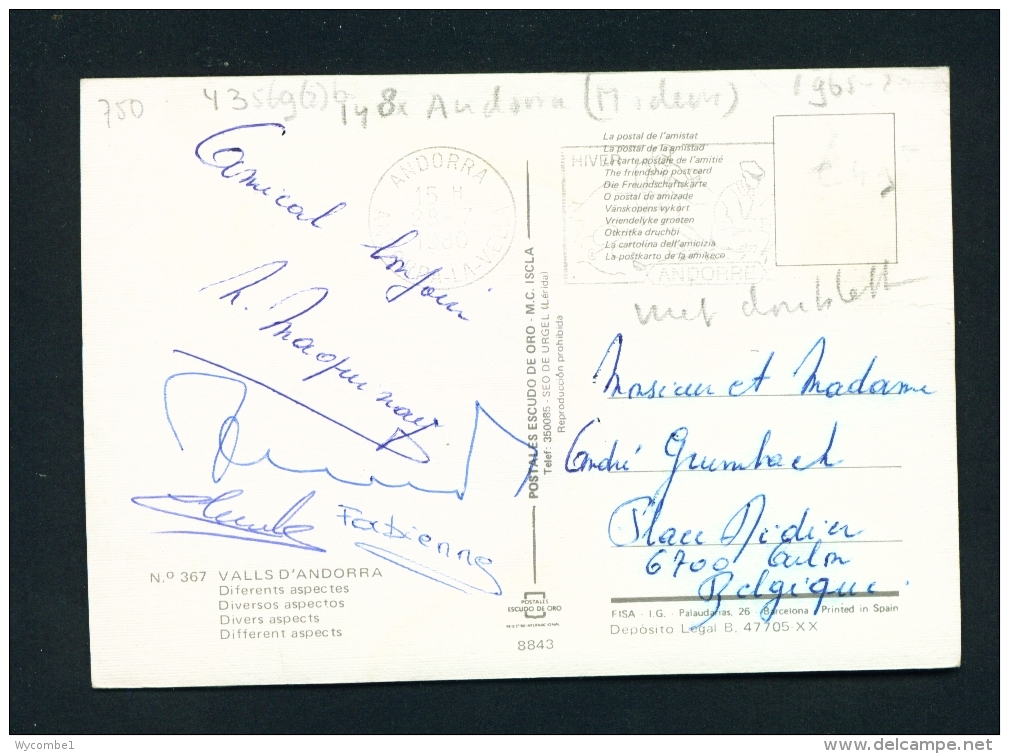 750
Andorra (Modern)
1965-
La postal de l'amistat
La postal de la amistad
La carte postale de l'amitié
The friendship post card
Die Freundschaftskarte
O postal de amizade
Vänskopens vykort
Vriendelyke groeten
Otkritka druchbi
La cartolina dell'amicizia
La postkarto de la amikeco
ANDORRA
15 H
1980
HIVER
ANDORRE
Amical bonjour
Fabienne
POSTALES ESCUDO DE ORO - M.C. ISCLA
Telef: 350085 - SEO DE URGEL (Lérida)
Reproducción prohibida
Monsieur et Madame
André Grumbach
Place Didier
6700 Arlon
Belgique
N.º 367 VALLS D'ANDORRA
Diferents aspectes
Diversos aspectos
Divers aspects
Different aspects
POSTALES
ESCUDO DE ORO
8843
FISA - I.G. Palaudarias, 26 Barcelona Printed in Spain
Depósito Legal B. 47705-XX
Wycombe1
delcampe.net